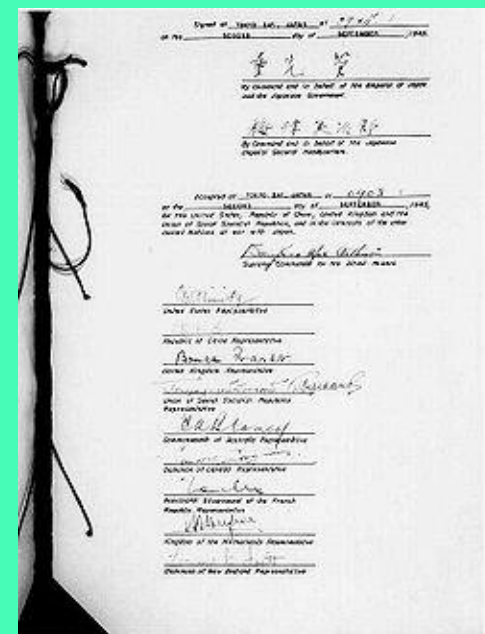 Signed at TOKYO BAY, JAPAN at 0904 I
on the SECOND day of SEPTEMBER, 1945.
重光葵
By Command and in behalf of the Emperor of Japan
and the Japanese Government.
梅津美治郎
By Command and in behalf of the Japanese
Imperial General Headquarters.
Accepted at TOKYO BAY, JAPAN at 0908 I
on the SECOND day of SEPTEMBER, 1945,
for the United States, Republic of China, United Kingdom and the
Union of Soviet Socialist Republics, and in the interests of the other
United Nations at war with Japan.
Douglas MacArthur
Supreme Commander for the Allied Powers
C.W. Nimitz
United States Representative
Republic of China Representative
Bruce Fraser
United Kingdom Representative
Union of Soviet Socialist Republics
Representative
T.A. Blamey
Commonwealth of Australia Representative
Dominion of Canada Representative
Provisional Government of the French
Republic Representative
Kingdom of the Netherlands Representative
Dominion of New Zealand Representative